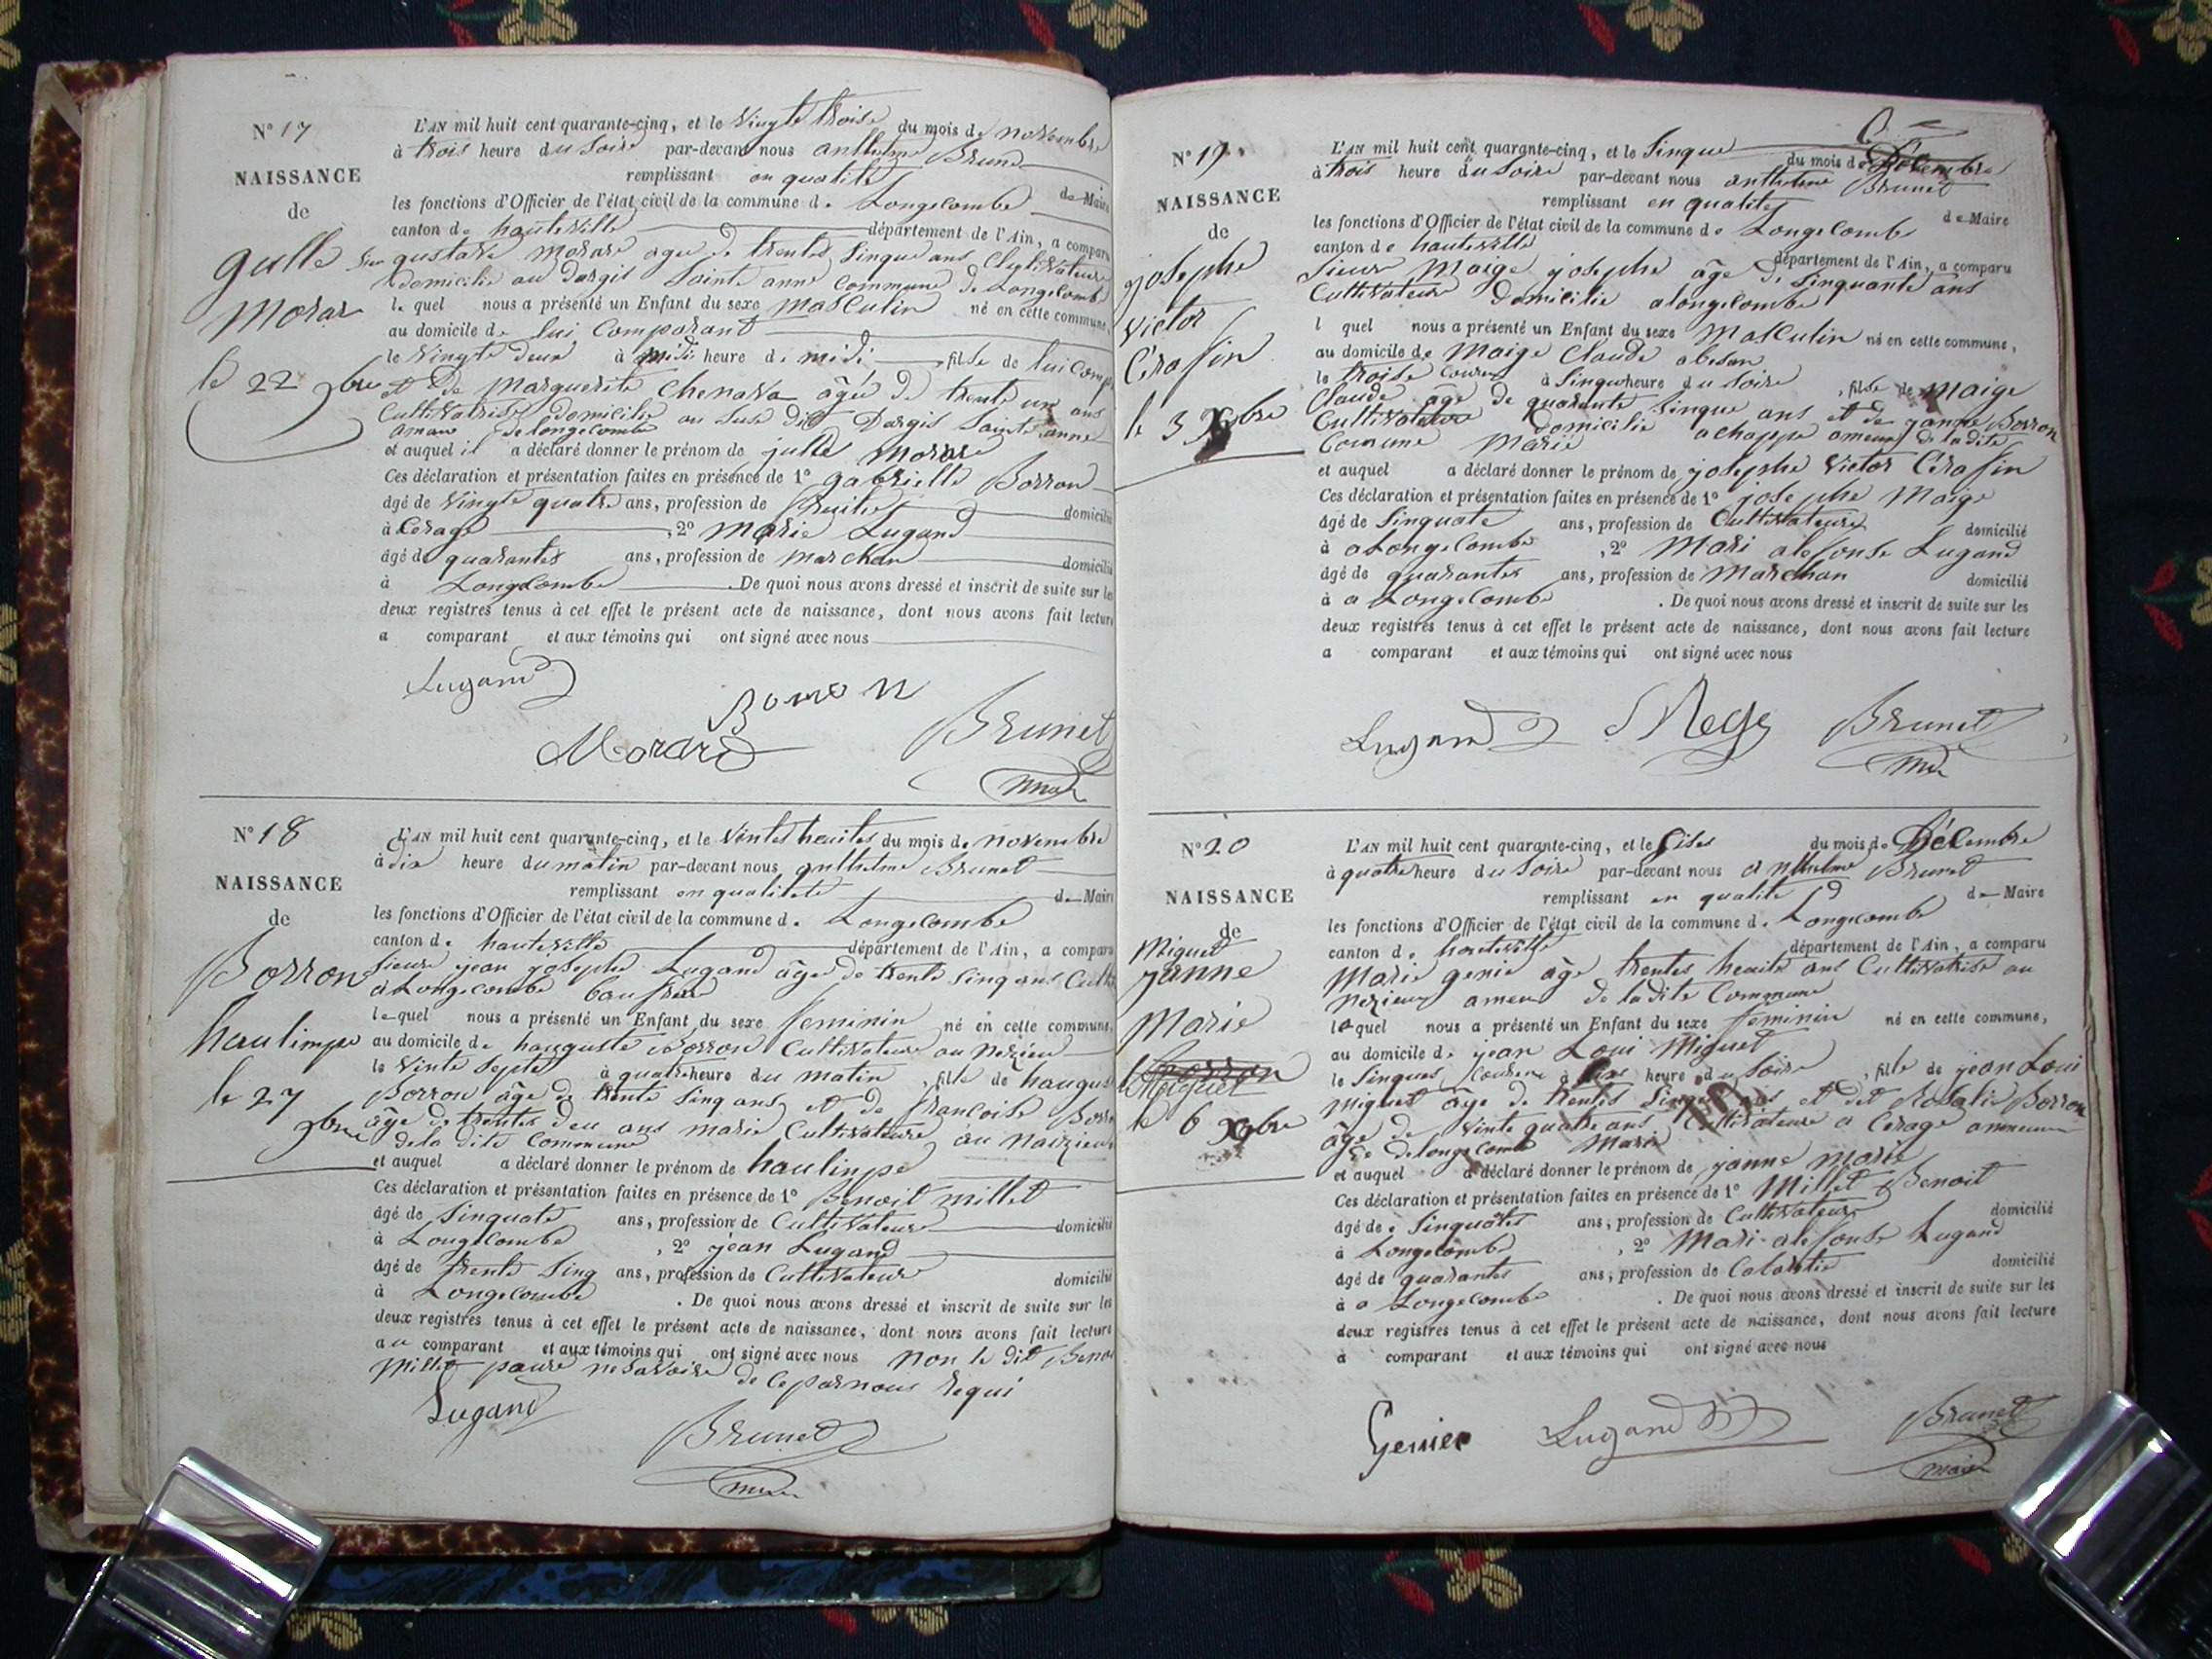 N° 17
NAISSANCE
de
gulle
Morar
le 22 9bre
L'AN mil huit cent quarante-cinq, et le Vingte trois du mois de novembre
à trois heure du Soire par-devant nous anthelme Brune
remplissant en qualité de Maire
les fonctions d'Officier de l'état civil de la commune de Longecombe
canton de hauteville département de l'Ain, a comparu
gustave Morare age de trentes Singue ans
domicilie au dargis Sainte anne Commune de Longecombe
le quel nous a présenté un Enfant du sexe Masculin né en cette commune,
au domicile de lui Comparant
le Vingte deux à midi heure de midi fils de lui Comp
et de Marguerite Chenava âgé de trente un ans
Cultivatrise domicilie au Suse dit Dargis Sainte anne
amaux de longecombe
et auquel il a déclaré donner le prénom de julle Morare
Ces déclaration et présentation faites en présence de 1° gabrielle Borron
âgé de Vingte quatre ans, profession de domicilié
à Cerage , 2° Marie Lugand
âgé de quarantes ans, profession de Marchan domicilié
à Longecombe . De quoi nous avons dressé et inscrit de suite sur les
deux registres tenus à cet effet le présent acte de naissance, dont nous avons fait lecture
a comparant et aux témoins qui ont signé avec nous
Lugand
Borron
Morard
Brunet
N° 18
NAISSANCE
de
Borron
haulimpe
le 27
9bre
L'AN mil huit cent quarante-cinq, et le Vintes heuites du mois de novembre
à dix heure du matin par-devant nous anthelme Brunet
remplissant en qualitete de Maire
les fonctions d'Officier de l'état civil de la commune de Longecombe
canton de hauteville département de l'Ain, a comparu
Sieure jean josephe Lugand âge de trente Sinq ans Cult
a Longecombe baufrere
le quel nous a présenté un Enfant du sexe feminin né en cette commune,
au domicile de hauguste Borron Cultivateure au nezieu
le Vinte Septe à quatre heure du matin , fille de haugus
Borron âge de trente Sinq ans et de françoise Borro
âge de trentes deu ans marie Cultivateure au naizieu
de la dite Commune
et auquel a déclaré donner le prénom de haulimpe
Ces déclaration et présentation faites en présence de 1° Benoit millet
âgé de Sinquate ans, profession de Cultivateure domicilié
à Longecombe , 2° jean Lugand
âgé de trente Sinq ans, profession de Cultivateur domicilié
à Longecombe . De quoi nous avons dressé et inscrit de suite sur les
deux registres tenus à cet effet le présent acte de naissance, dont nous avons fait lecture
au comparant et aux témoins qui ont signé avec nous Non le dit Benoi
Millet paure ne Savoire de Ce par nous Requi
Lugand
Brunet
N° 19
NAISSANCE
de
josephe
Victor
Cerafin
le 3 Xbre
L'AN mil huit cent quarante-cinq, et le Singue du mois de Décembre
à trois heure du Soire par-devant nous anthelme Brunet
remplissant en qualite de Maire
les fonctions d'Officier de l'état civil de la commune de Longecombe
canton de hauteville département de l'Ain, a comparu
Sieure Maige josephe âge de Sinquante ans
Cultivateure domicilie a longecombe
l quel nous a présenté un Enfant du sexe Masculin né en cette commune,
au domicile de Maige Claude
le troise à Singue heure du Soire , fils de Maige
Claude âge de quarante Singue ans et de ganne Borron
Cultivateure domicilie a Chappe ameux de la dite
Comune Marie
et auquel a déclaré donner le prénom de josephe Victor Cerafin
Ces déclaration et présentation faites en présence de 1° josephe Maige
âgé de Sinquate ans, profession de Cultivateure domicilié
à a Longecombe , 2° Mari alefonse Lugand
âgé de quarantes ans, profession de Marchan domicilié
à a Longecombe . De quoi nous avons dressé et inscrit de suite sur les
deux registres tenus à cet effet le présent acte de naissance, dont nous avons fait lecture
a comparant et aux témoins qui ont signé avec nous
Lugand
Brunet
N° 20
NAISSANCE
de
Miguet
yanne
Marie
le 6 Xbre
L'AN mil huit cent quarante-cinq, et le Sises du mois de Décembre
à quatre heure du Soire par-devant nous anthelme Brunet
remplissant en qualite de Maire
les fonctions d'Officier de l'état civil de la commune de Longecombe
canton de hauteville département de l'Ain, a comparu
Marie genie âge trentes heuite ans Cultivatrise au
nezieux ameu de la dite Commune
laquel nous a présenté un Enfant du sexe feminin né en cette commune,
au domicile de jean Loui Miguet
le Singues Courant à heure du Soire , fille de jean Loui
Miguet âge de trentes Singue ans et det Rosalie Borron
âge de Vinte quatre ans Cultivateure a Cerage
de longecombe Marie
et auquel a déclaré donner le prénom de yanne Marie
Ces déclaration et présentation faites en présence de 1° Millet Benoit
âgé de Sinquates ans, profession de Cultivateure domicilié
à Longecombe , 2° Mari alefonse Lugand
âgé de quarantes ans, profession de Cabaretie domicilié
à a Longecombe . De quoi nous avons dressé et inscrit de suite sur les
deux registres tenus à cet effet le présent acte de naissance, dont nous avons fait lecture
a comparant et aux témoins qui ont signé avec nous
Genier
Lugand
Brunet
maire